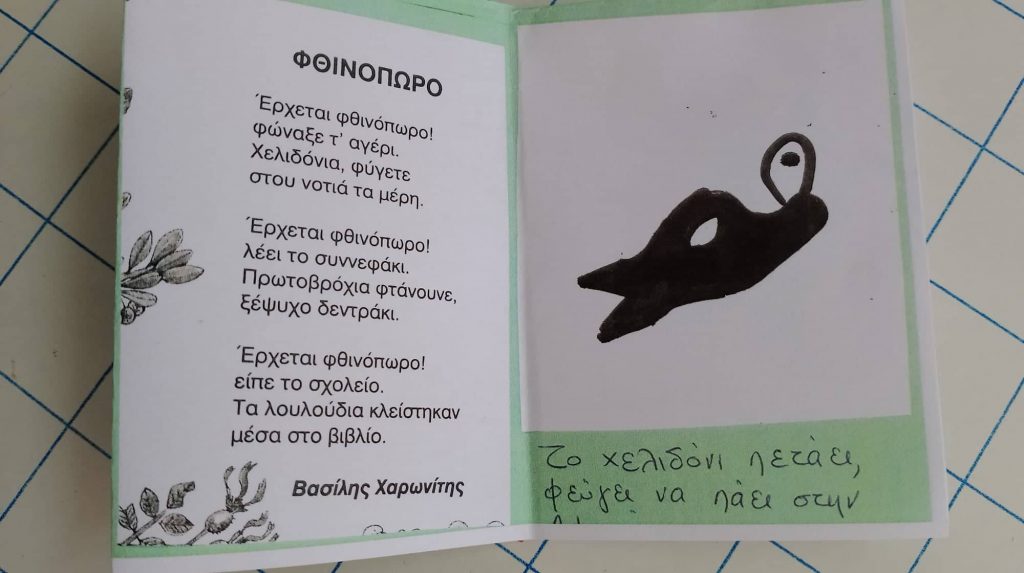 ΦΘΙΝΟΠΩΡΟ
Έρχεται φθινόπωρο!
φώναξε τ' αγέρι.
Χελιδόνια, φύγετε
στου νοτιά τα μέρη.
Έρχεται φθινόπωρο!
λέει το συννεφάκι.
Πρωτοβρόχια φτάνουνε,
ξέψυχο δεντράκι.
Έρχεται φθινόπωρο!
είπε το σχολείο.
Τα λουλούδια κλείστηκαν
μέσα στο βιβλίο.
Βασίλης Χαρωνίτης
Το χελιδόνι πετάει,
φεύγει να πάει στην